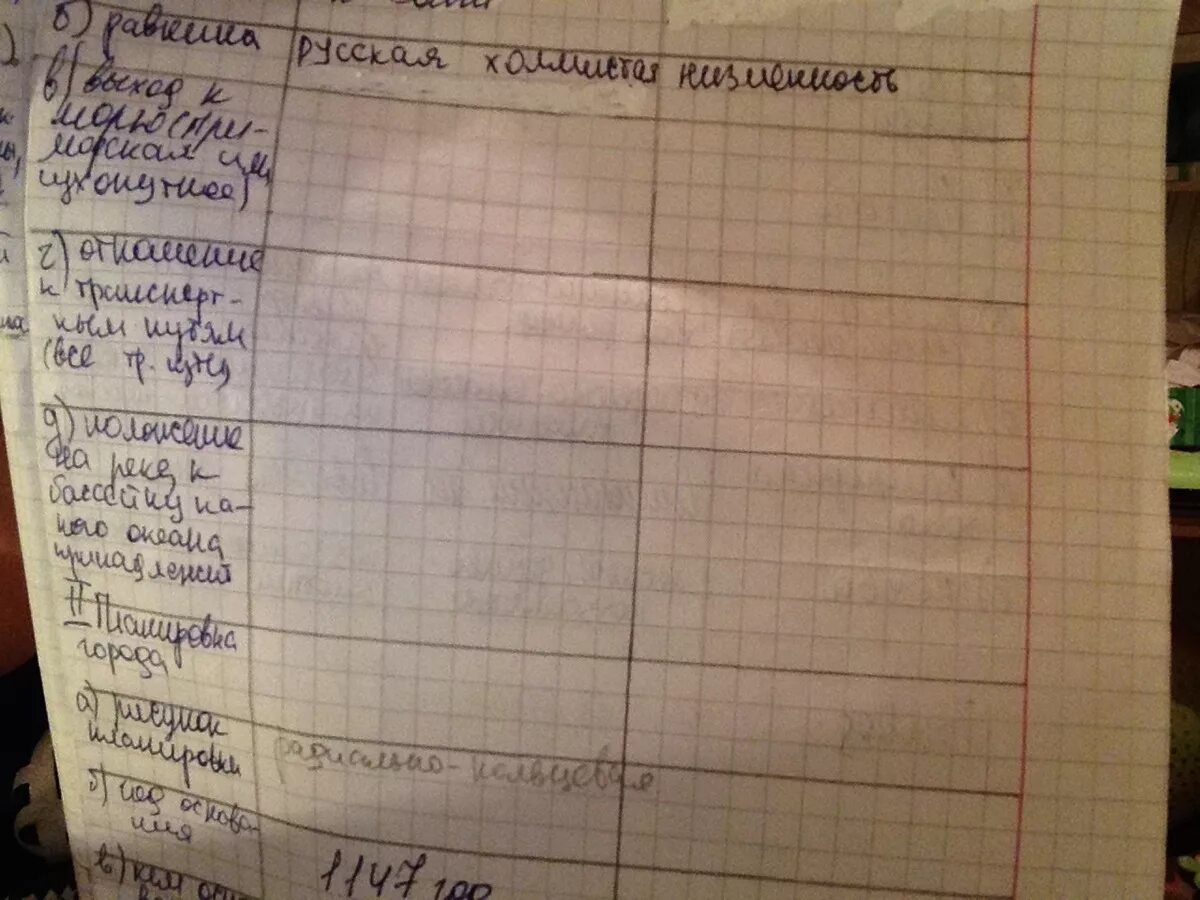 б) равнина
русская холмистая низменность
в) выход к
морю (при-
морская или
сухопутное)
г) отношение
к транспорт-
ным путям
(все тр. пути)
д) положение
на реке, к
бассейну ка-
кого океана
принадлежит
II Планировка
города
а) рисунок
планировки
радиально-кольцевая
б) год основа-
ния
1147 год
в) кем осно